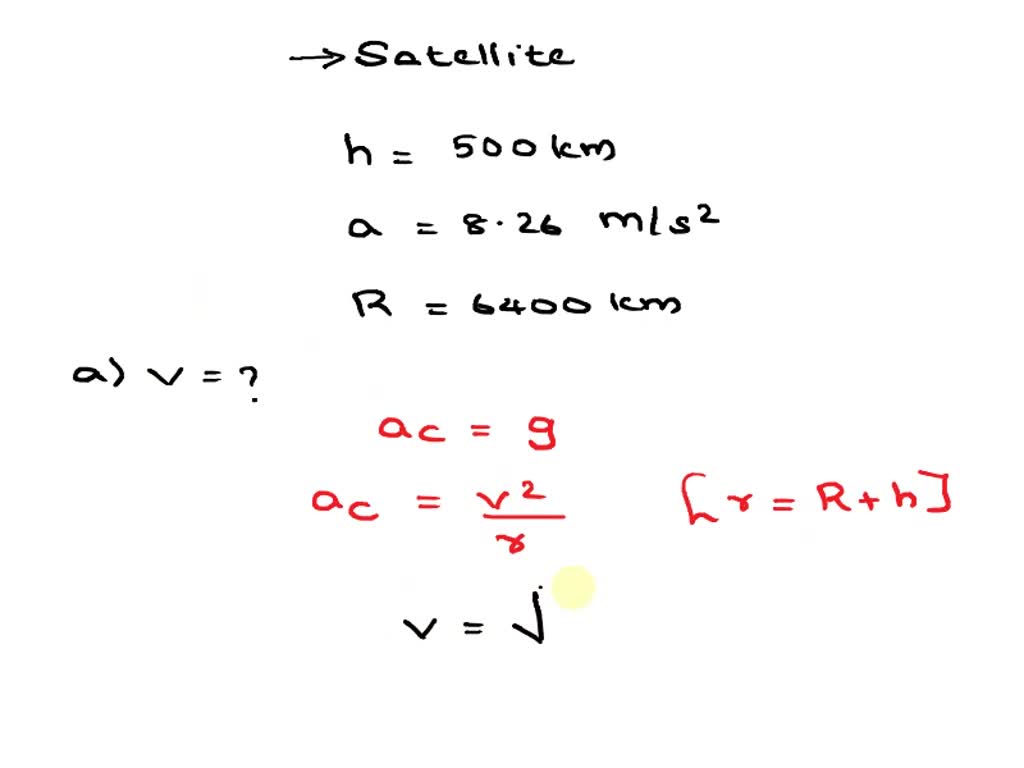 → Satellite
h = 500 km
a = 8.26 m/s²
R = 6400 km
a) v = ?
ac = g
ac = v²/r [r = R + h]
v = √